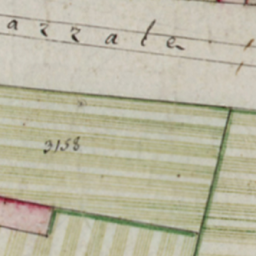 azzale
3158